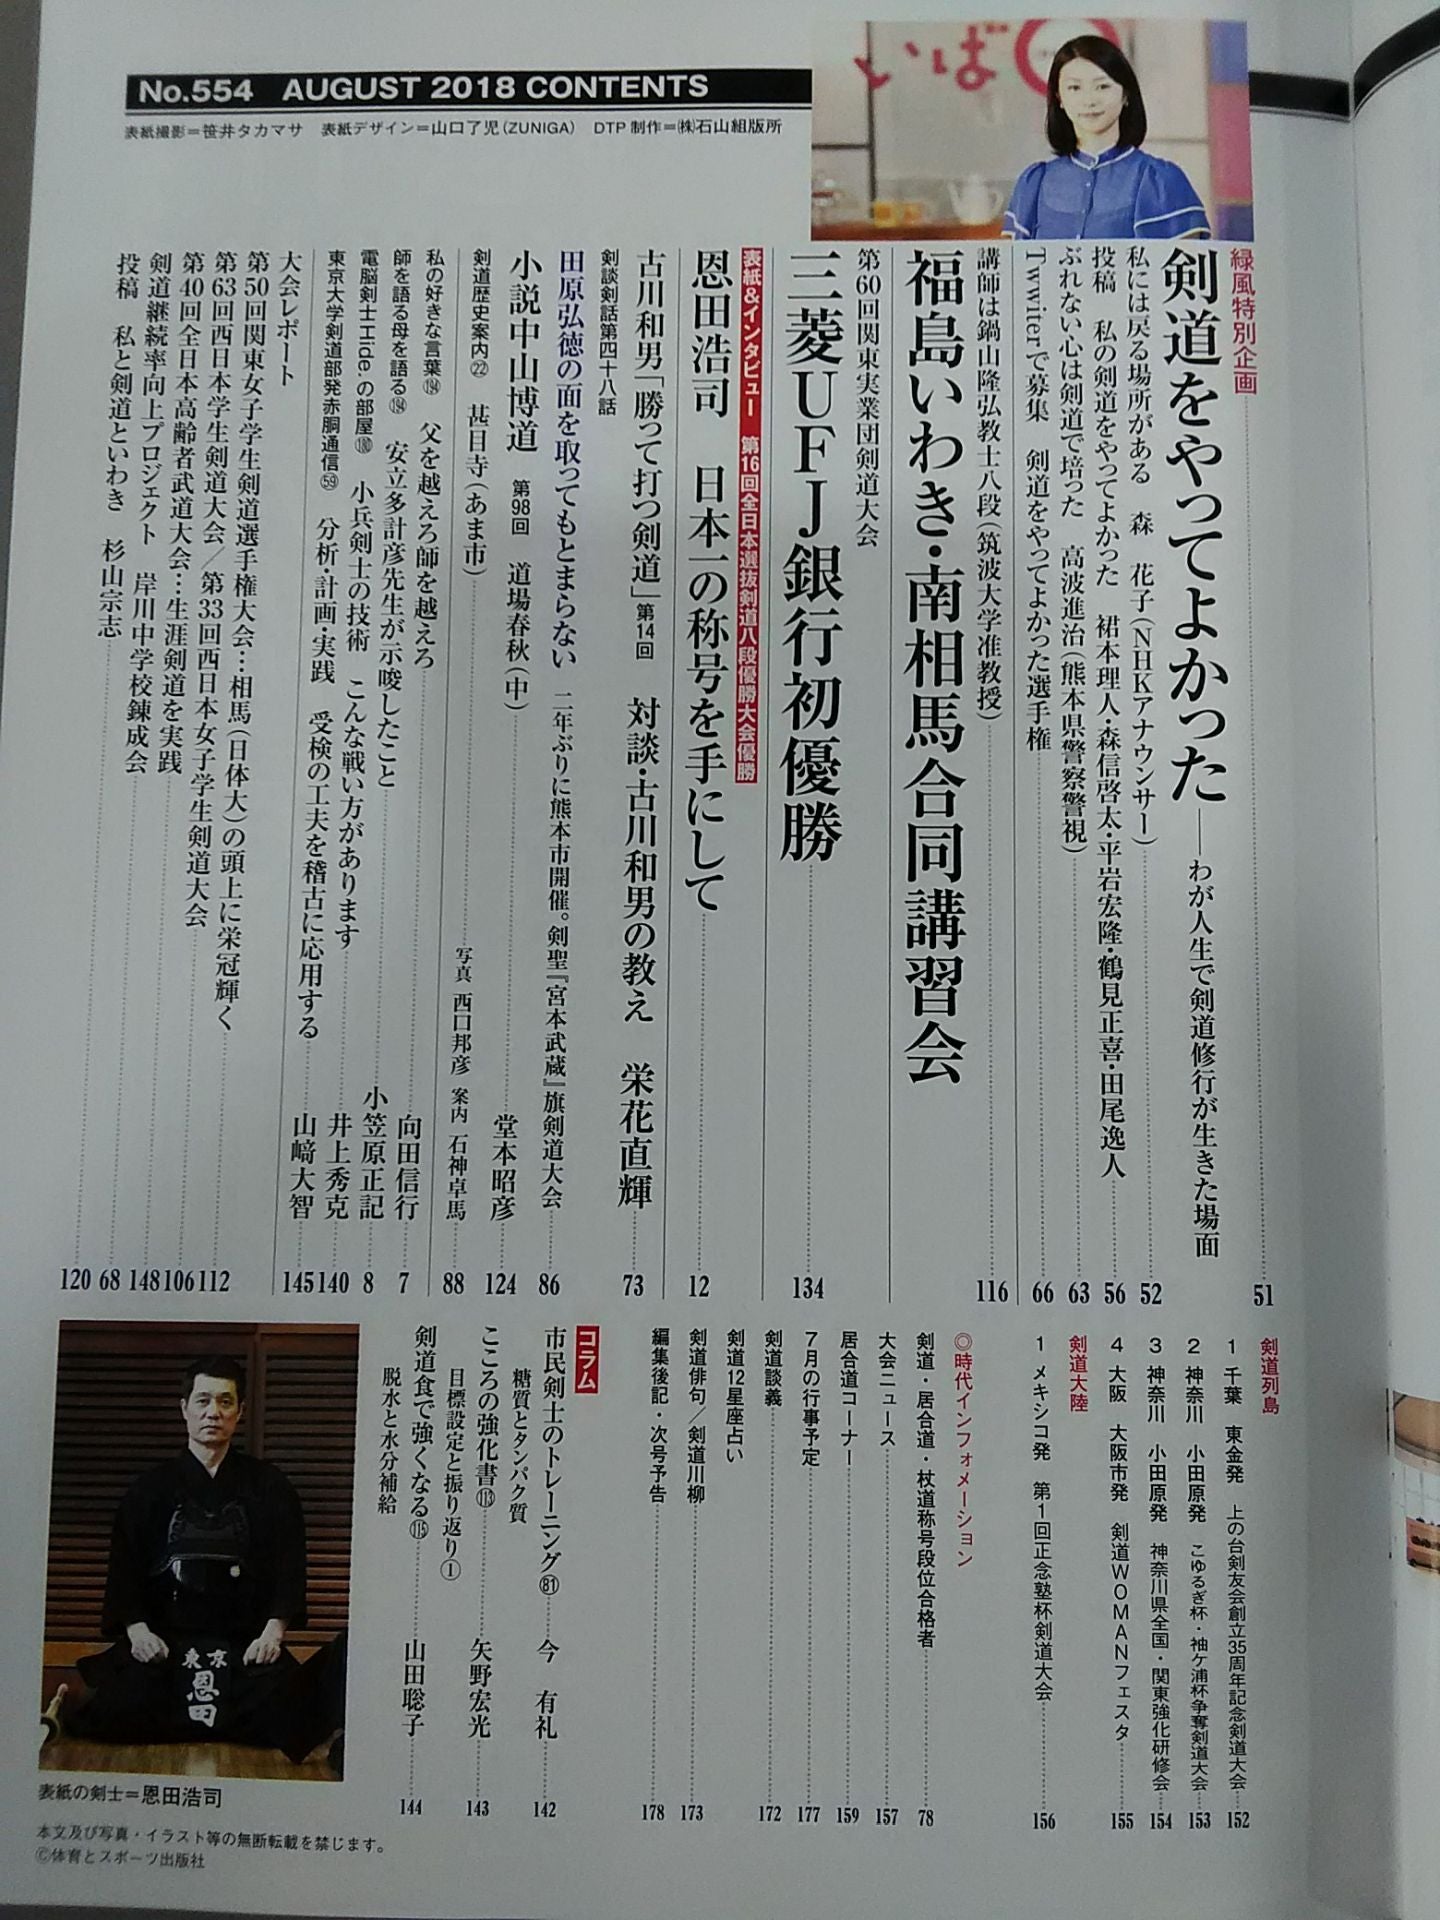 いば
No.554 AUGUST 2018 CONTENTS
表紙撮影＝笹井タカマサ 表紙デザイン＝山口了児(ZUNIGA) DTP制作＝㈱石山組版所
緑風特別企画 51
剣道をやってよかった──わが人生で剣道修行が生きた場面
私には戻る場所がある 森 花子(NHKアナウンサー) 52
投稿 私の剣道をやってよかった 裙本理人・森信啓太・平岩宏隆・鶴見正喜・田尾逸人 56
ぶれない心は剣道で培った 高波進治(熊本県警察警視) 63
Twwierで募集 剣道をやってよかった選手権 66
講師は鍋山隆弘教士八段(筑波大学准教授) 116
福島いわき・南相馬合同講習会
第60回関東実業団剣道大会
三菱UFJ銀行初優勝 134
表紙&インタビュー 第16回全日本選抜剣道八段優勝大会優勝
恩田浩司 日本一の称号を手にして 12
古川和男「勝って打つ剣道」第14回 対談・古川和男の教え 栄花直輝 73
剣談剣話第四十八話
田原弘徳の面を取ってもとまらない 二年ぶりに熊本市開催。剣聖『宮本武蔵』旗剣道大会 86
小説中山博道 第98回 道場春秋(中) 堂本昭彦 124
剣道歴史案内㉒ 甚目寺(あま市) 写真 西口邦彦 案内 石神卓馬 88
私の好きな言葉(194) 父を越えろ師を越えろ 向田信行 7
師を語る母を語る(194) 安立多計彦先生が示唆したこと 小笠原正記 8
電脳剣士Hide.の部屋(180) 小兵剣士の技術 こんな戦い方があります 井上秀克 140
東京大学剣道部発赤胴通信(59) 分析・計画・実践 受検の工夫を稽古に応用する 山﨑大智 145
大会レポート
第50回関東女子学生剣道選手権大会…相馬(日体大)の頭上に栄冠輝く 112
第63回西日本学生剣道大会／第33回西日本女子学生剣道大会 106
第40回全日本高齢者武道大会…生涯剣道を実践 148
剣道継続率向上プロジェクト 岸川中学校錬成会 68
投稿 私と剣道といわき 杉山宗志 120
剣道列島
1 千葉 東金発 上の台剣友会創立35周年記念剣道大会 152
2 神奈川 小田原発 こゆるぎ杯・袖ケ浦杯争奪剣道大会 153
3 神奈川 小田原発 神奈川県全国・関東強化研修会 154
4 大阪 大阪市発 剣道WOMANフェスタ 155
剣道大陸
1 メキシコ発 第1回正念塾杯剣道大会 156
◎時代インフォメーション
剣道・居合道・杖道称号段位合格者 78
大会ニュース 157
居合道コーナー 159
7月の行事予定 177
剣道談義 172
剣道12星座占い
剣道俳句／剣道川柳 173
編集後記・次号予告 178
コラム
市民剣士のトレーニング(81) 今 有礼 142
糖質とタンパク質
こころの強化書(113) 矢野宏光 143
目標設定と振り返り①
剣道食で強くなる(115) 山田聡子 144
脱水と水分補給
東京
恩田
表紙の剣士＝恩田浩司
本文及び写真・イラスト等の無断転載を禁じます。
Ⓒ体育とスポーツ出版社